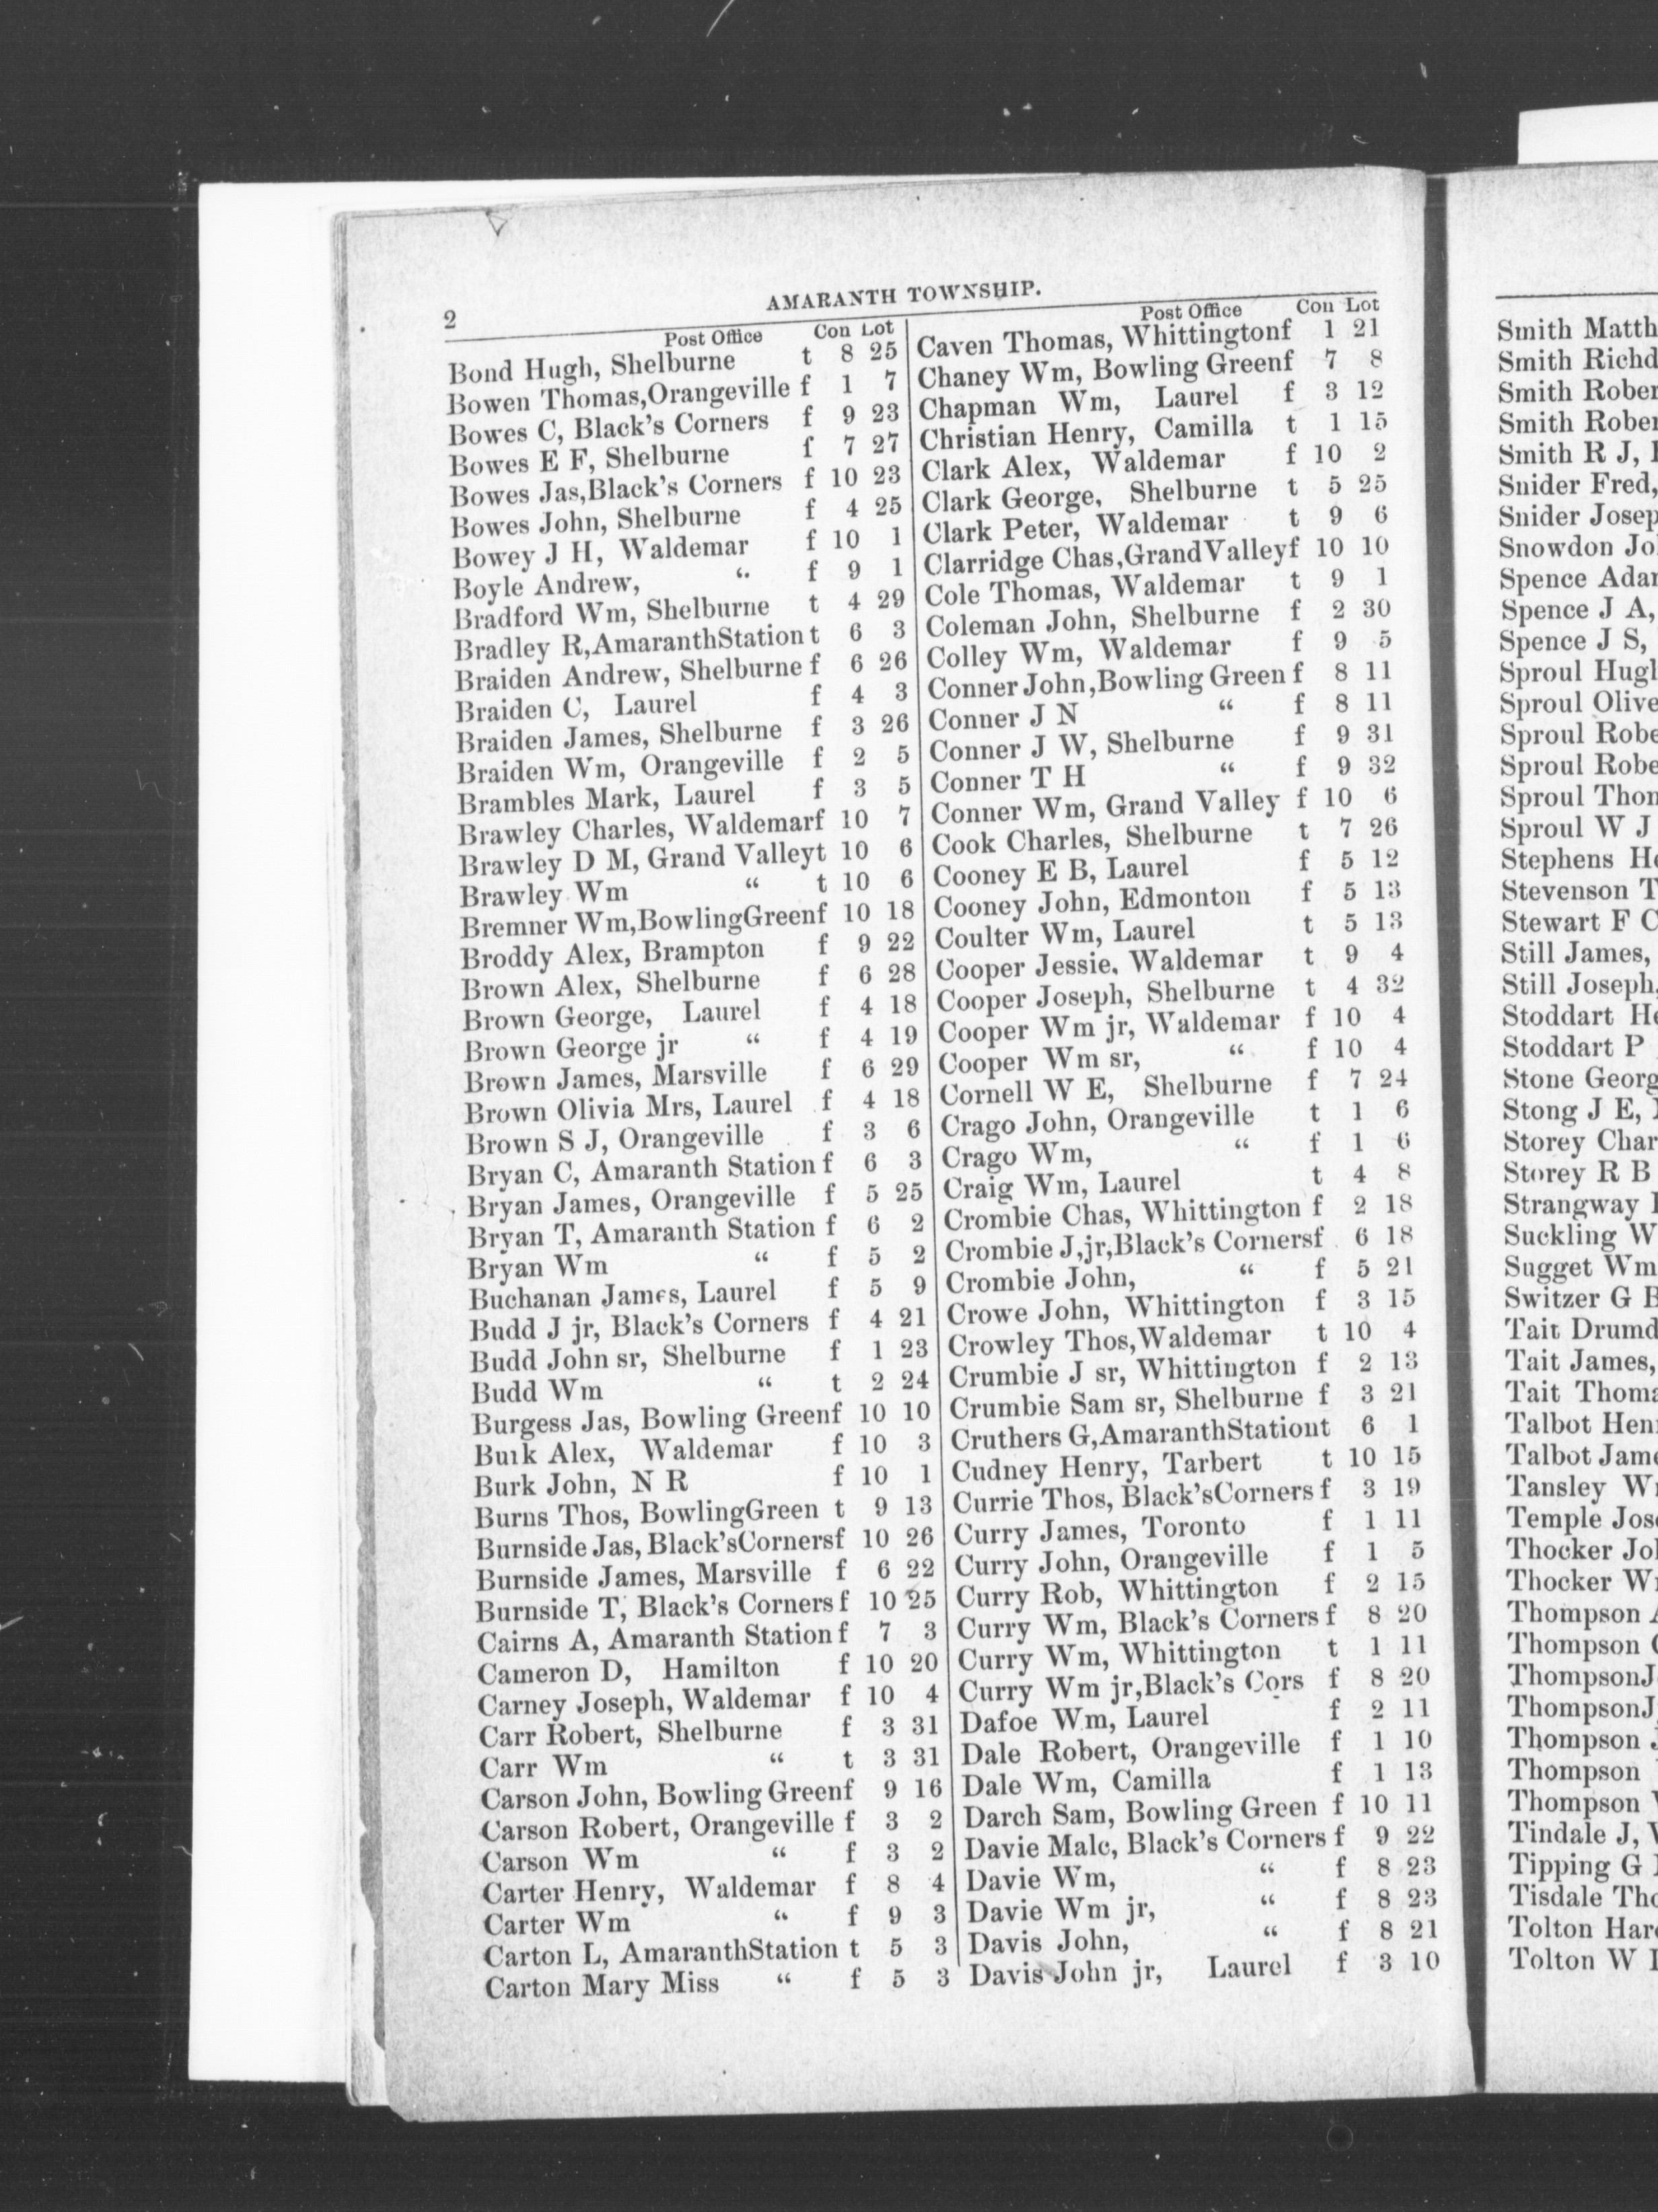 2
AMARANTH TOWNSHIP.
Post Office Con Lot
Bond Hugh, Shelburne t 8 25
Bowen Thomas,Orangeville f 1 7
Bowes C, Black's Corners f 9 23
Bowes E F, Shelburne f 7 27
Bowes Jas,Black's Corners f 10 23
Bowes John, Shelburne f 4 25
Bowey J H, Waldemar f 10 1
Boyle Andrew, “ f 9 1
Bradford Wm, Shelburne t 4 29
Bradley R,AmaranthStation t 6 3
Braiden Andrew, Shelburne f 6 26
Braiden C, Laurel f 4 3
Braiden James, Shelburne f 3 26
Braiden Wm, Orangeville f 2 5
Brambles Mark, Laurel f 3 5
Brawley Charles, Waldemarf 10 7
Brawley D M, Grand Valleyt 10 6
Brawley Wm “ t 10 6
Bremner Wm,BowlingGreenf 10 18
Broddy Alex, Brampton f 9 22
Brown Alex, Shelburne f 6 28
Brown George, Laurel f 4 18
Brown George jr “ f 4 19
Brown James, Marsville f 6 29
Brown Olivia Mrs, Laurel f 4 18
Brown S J, Orangeville f 3 6
Bryan C, Amaranth Station f 6 3
Bryan James, Orangeville f 5 25
Bryan T, Amaranth Station f 6 2
Bryan Wm “ f 5 2
Buchanan James, Laurel f 5 9
Budd J jr, Black's Corners f 4 21
Budd John sr, Shelburne f 1 23
Budd Wm “ t 2 24
Burgess Jas, Bowling Greenf 10 10
Burk Alex, Waldemar f 10 3
Burk John, N R f 10 1
Burns Thos, BowlingGreen t 9 13
Burnside Jas, Black'sCornersf 10 26
Burnside James, Marsville f 6 22
Burnside T, Black's Corners f 10 25
Cairns A, Amaranth Station f 7 3
Cameron D, Hamilton f 10 20
Carney Joseph, Waldemar f 10 4
Carr Robert, Shelburne f 3 31
Carr Wm “ t 3 31
Carson John, Bowling Greenf 9 16
Carson Robert, Orangeville f 3 2
Carson Wm “ f 3 2
Carter Henry, Waldemar f 8 4
Carter Wm “ f 9 3
Carton L, AmaranthStation t 5 3
Carton Mary Miss “ f 5 3
Post Office Con Lot
Caven Thomas, Whittingtonf 1 21
Chaney Wm, Bowling Greenf 7 8
Chapman Wm, Laurel f 3 12
Christian Henry, Camilla t 1 15
Clark Alex, Waldemar f 10 2
Clark George, Shelburne t 5 25
Clark Peter, Waldemar t 9 6
Clarridge Chas,GrandValleyf 10 10
Cole Thomas, Waldemar t 9 1
Coleman John, Shelburne f 2 30
Colley Wm, Waldemar f 9 5
Conner John,Bowling Green f 8 11
Conner J N “ f 8 11
Conner J W, Shelburne f 9 31
Conner T H “ f 9 32
Conner Wm, Grand Valley f 10 6
Cook Charles, Shelburne t 7 26
Cooney E B, Laurel f 5 12
Cooney John, Edmonton f 5 13
Coulter Wm, Laurel t 5 13
Cooper Jessie, Waldemar t 9 4
Cooper Joseph, Shelburne t 4 32
Cooper Wm jr, Waldemar f 10 4
Cooper Wm sr, “ f 10 4
Cornell W E, Shelburne f 7 24
Crago John, Orangeville t 1 6
Crago Wm, “ f 1 6
Craig Wm, Laurel t 4 8
Crombie Chas, Whittington f 2 18
Crombie J,jr,Black's Cornersf 6 18
Crombie John, “ f 5 21
Crowe John, Whittington f 3 15
Crowley Thos,Waldemar t 10 4
Crumbie J sr, Whittington f 2 13
Crumbie Sam sr, Shelburne f 3 21
Cruthers G,AmaranthStationt 6 1
Cudney Henry, Tarbert t 10 15
Currie Thos, Black'sCorners f 3 19
Curry James, Toronto f 1 11
Curry John, Orangeville f 1 5
Curry Rob, Whittington f 2 15
Curry Wm, Black's Corners f 8 20
Curry Wm, Whittington t 1 11
Curry Wm jr,Black's Cors f 8 20
Dafoe Wm, Laurel f 2 11
Dale Robert, Orangeville f 1 10
Dale Wm, Camilla f 1 13
Darch Sam, Bowling Green f 10 11
Davie Malc, Black's Corners f 9 22
Davie Wm, “ f 8 23
Davie Wm jr, “ f 8 23
Davis John, “ f 8 21
Davis John jr, Laurel f 3 10
Smith Matth
Smith Richd
Smith Rober
Smith Rober
Smith R J,
Snider Fred,
Snider Josep
Snowdon Jo
Spence Adar
Spence J A,
Spence J S,
Sproul Hugh
Sproul Olive
Sproul Robe
Sproul Robe
Sproul Thon
Sproul W J
Stephens He
Stevenson T
Stewart F C
Still James,
Still Joseph,
Stoddart He
Stoddart P
Stone Georg
Stong J E,
Storey Char
Storey R B
Strangway
Suckling W
Sugget Wm
Switzer G B
Tait Drumd
Tait James,
Tait Thoma
Talbot Hen
Talbot Jame
Tansley W
Temple Jose
Thocker Jo
Thocker W
Thompson
Thompson
ThompsonJ
ThompsonJ
Thompson
Thompson
Thompson
Tindale J,
Tipping G
Tisdale Tho
Tolton Har
Tolton W